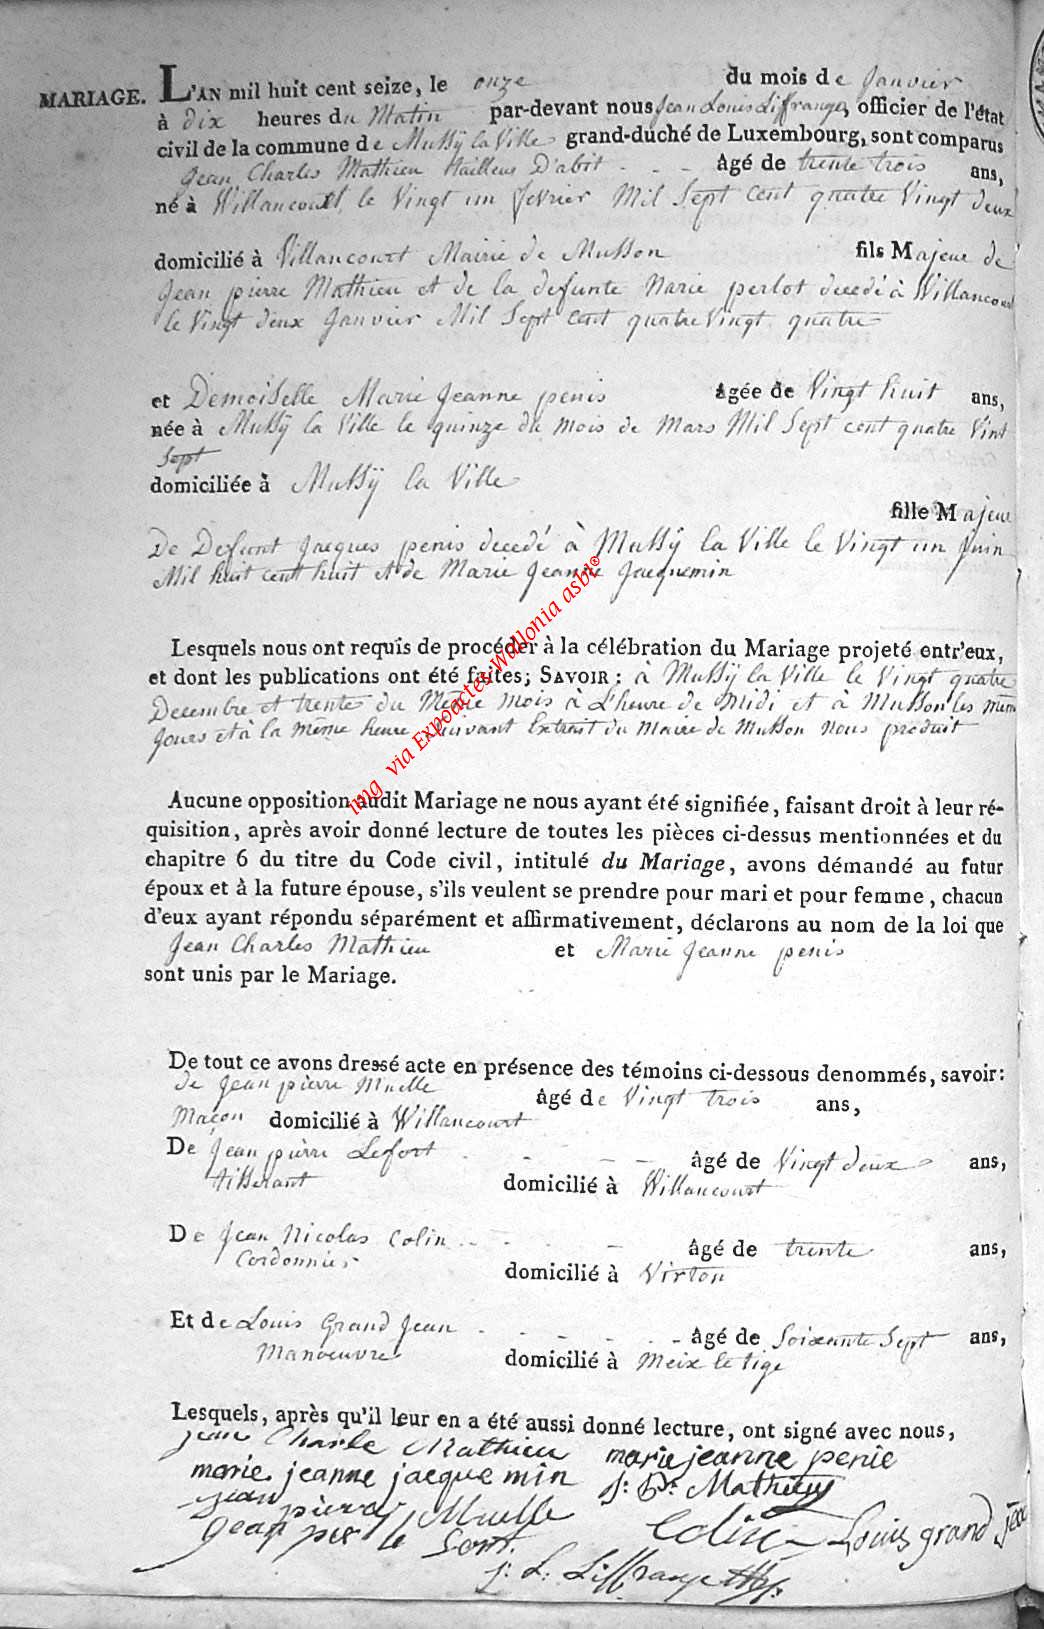 MARIAGE. L'AN mil huit cent seize, le onze du mois de Janvier
à dix heures du Matin par-devant nous Jean Louis Liffrange, officier de l'état
civil de la commune de Mussÿ la Ville grand-duché de Luxembourg, sont comparus
Jean Charles Mathieu tailleur D'abit - - - Âgé de trente trois ans,
né à Willancourt, le Vingt un fevrier Mil Sept cent quatre Vingt deux
domicilié à Villancourt Mairie de Musson fils Majeur de
Jean pierre Mathieu et de la defunte Marie perlot decedé à Willancourt
le Vingt deux Janvier Mil Sept cent quatre Vingt quatre
et Demoiselle Marie Jeanne penis âgée de Vingt huit ans,
née à Mussÿ la Ville le quinze du mois de Mars Mil Sept cent quatre Vint
Sept
domiciliée à Mussÿ la Ville
fille Majeur
De Defunt Jacques penis decedé à Mussÿ la Ville le Vingt un Juin
Mil huit cent huit et de Marie Jeanne Jacquemin
Lesquels nous ont requis de procéder à la célébration du Mariage projeté entr'eux,
et dont les publications ont été faites; SAVOIR : à Mussÿ la Ville le Vingt quatre
Decembre et trente du Même mois à L'heure de Midi et à Musson les même
Jours et à la même heure suivant Extrait du Maire de Musson nous produit
Aucune opposition audit Mariage ne nous ayant été signifiée, faisant droit à leur ré-
quisition, après avoir donné lecture de toutes les pièces ci-dessus mentionnées et du
chapitre 6 du titre du Code civil, intitulé du Mariage, avons démandé au futur
époux et à la future épouse, s'ils veulent se prendre pour mari et pour femme, chacun
d'eux ayant répondu séparément et affirmativement, déclarons au nom de la loi que
Jean Charles Mathieu et Marie Jeanne penis
sont unis par le Mariage.
De tout ce avons dressé acte en présence des témoins ci-dessous denommés, savoir:
de Jean pierre Muelle âgé de Vingt trois ans,
Maçon domicilié à Willancourt
De Jean pierre Lefort - - - âgé de Vingt deux ans,
tisserant domicilié à Willancourt
De Jean Nicolas Colin - - - âgé de trente ans,
Cordonnier domicilié à Virton
Et de Louis Grand Jean - - - âgé de Soixante Sept ans,
Manoeuvre domicilié à Meix le tige
Lesquels, après qu'il leur en a été aussi donné lecture, ont signé avec nous,
jean Charle Mathieu marie jeanne penie
marie jeanne jacque min j: p: Mathieu
jean pierre Muelle Colin Louis grand jean
jean pier le fort
j: L: Liffrange
img via Expoactes Wallonia asbl©